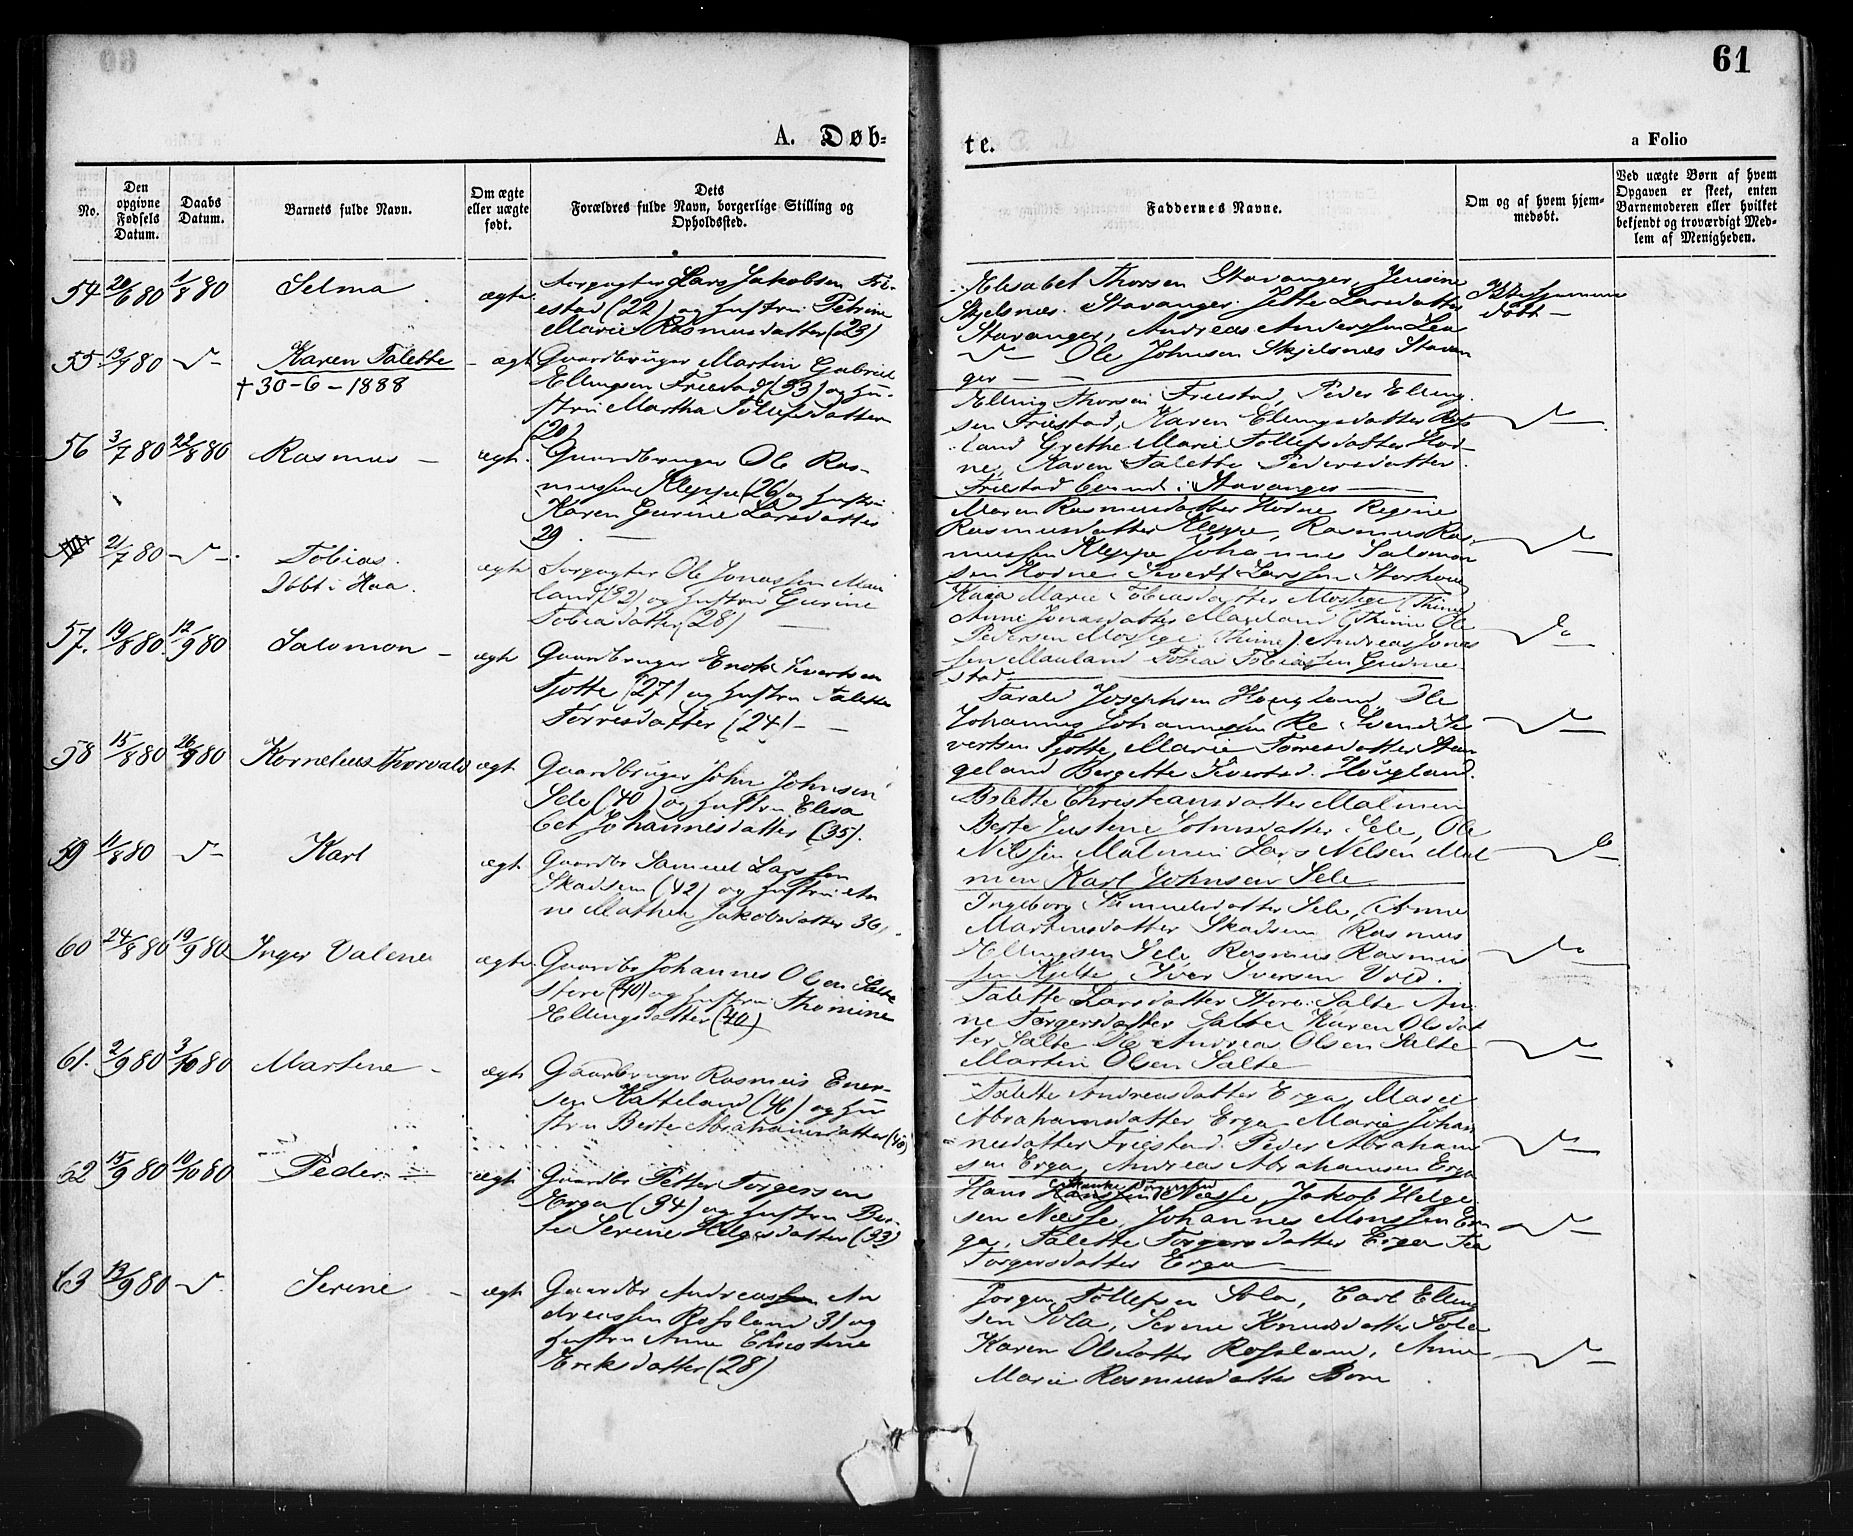 61
A. Døb-
te.
a Folio
No.
Den opgivne Fødsels Datum.
Daabs Datum.
Barnets fulde Navn.
Om ægte eller uægte født.
Dets Forældres fulde Navn, borgerlige Stilling og Opholdssted.
Faddernes Navne.
Om og af hvem hjemmedøbt.
Ved uægte Børn af hvem Opgaven er skeet, enten Barnemoderen eller hvilket bekjendt og troværdigt Medlem af Menigheden.
54 20/6 80 1/8 80 Selma ægte
Forpagter Lars Jakobsen Fri-
estad (22) og Hustru Petrine
Marie Rasmusdatter (23)
Elisabet Thorsen Stavanger, Jensine
Skjelsnæs Stavanger. Jette Larsdatter
Stavanger, Andreas Anderssen Lea
Ole Johnsen Skjelsnæs Stavan
ger
Ikke hjemme
døbt
55 13/7 80 Karen Talette ægt
† 30-6-1888
Gaardbruger Martin Gabriel
Ellingsen Friestad (33) og Hu-
stru Martha Tollefsdatter
(20)
Elling Thorsen Friestad, Peder Elling
sen Friestad, Karen Ellingsdatter
land Grethe Marie Tollefsdatter Hod-
ne, Karen Talette Pedersdatter
Friestad boende i Stavanger
56 3/7 80 22/8 80 Rasmus ægt.
Gaardbruger Ole Ras-
mussen Kleppe (26) og Hustru
Karen Gurine Larsdatter
29
Maren Rasmusdatter Hodne Regine
Rasmusdatter Kleppe, Rasmus Ras-
mussen Kleppe Johannes Salomon
sen Hodne Sivert Larssen Storhoug
21/7 80 Tobias. ægte
Døbt i Haa.
Forpagter Ole Jonassen Mau
land (32) og Hustru Gurine
Tobiasdatter (28)
Kaia Marie Tobiasdatter Mossige (Thime)
Anne Jonasdatter Mauland (Thime) Ole
Pedersen Mossige (Thime) Andreas Jonas
sen Mauland Tobias Tobiassen Gudme-
stad
Do
57. 19/8 80 12/9 80 Salomon ægte
Gaardbruger Enok Sivertsen
Tjotte (27) og Hustru Talette
Torresdatter (24)
Tarald Josephsen Hougland, Ole
Johannes Johannessen Re Svend Si
vertsen Tjotte, Marie Torresdatter Stan
geland Bergette Hougland.
58 15/8 80 26/9 80 Kornelius Thorvald ægt
Gaardbruger John Johnsen
Sele (40) og Hustru Elisa
bet Johannesdatter (35).
Bolette Christiansdatter Malmin
Berte Justine Johnsdatter Sele, Ole
Nilssen Malmin Lars Nilsen Mal
min Karl Johnsen Sele
59 11/8 80 Karl ægt
Gaardbr Samuel Larssen
Skadsem (42) og Hustru An
ne Mathea Jakobsdatter 36
Ingeborg Samuelsdatter Sele, Anne
Martinsdatter Skadsem Rasmus
Ellingsen Sele Rasmus Rasmus
sen Kjelte, Iver Iversen Vold.
60 24/8 80 19/9 80 Inger Valene ægte
Gaardbr Johannes Olsen Salte
store (40) og Hustru Thomine
Ellingsdatter (40)
Talette Larsdatter Store Salte An-
ne Torgersdatter Salte Karen Olsdat
ter Salte Do Andreas Olsen Salte
Martin Olsen Salte
61. 2/9 80 3/10 80 Martine ægte
Gaardbruger Rasmus Ener-
sen Katteland (46) og Hu
stru Berte Abrahamsdatter (40)
Talette Andreasdatter Erga, Marie
Abrahamsdatter Erga Marie Johan
nesdatter Friestad. Peder Abraham
sen Erga, Andreas Abrahamsen Erga
62 15/9 80 10/10 80 Peder ægt
Gaardbr Petter Torgersen
Erga (34) og Hustru Ber-
te Serine Helgesdatter (33)
Hans Hanssen Næsse, Jakob Helge
sen Næsse, Johannes Monssen Er
ga, Talette Torgersdatter Erga Tea
Torgersdatter Erga
63 13/9 80 Serine ægt
Gaardbr Andreas An
dreassen Rossland 31 og
Hustru Anne Christine
Eriksdatter (28)
Jorgen Tollefsen Sola, Carl Elling
sen Sola, Serine Knudsdatter Sola
Karen Olsdatter Rossland, Anne
Marie Rasmusdatter Bore